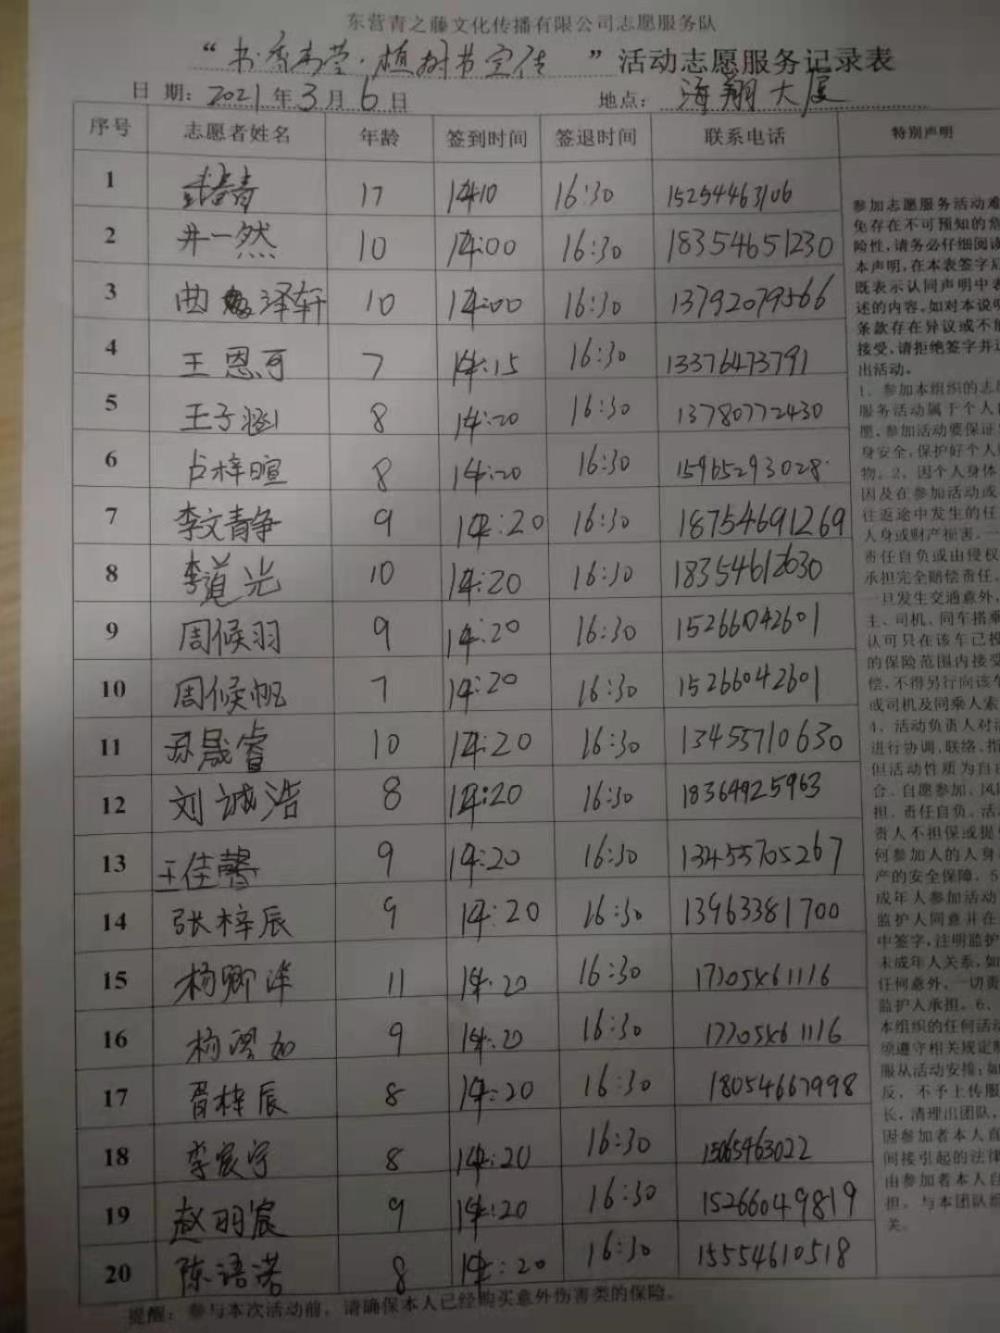 东营青之藤文化传播有限公司志愿服务队
“书香东营·植树节宣传”活动志愿服务记录表
日 期：2021年3月6日 地点：海翔大厦
序号 志愿者姓名 年龄 签到时间 签退时间 联系电话 特别声明
1 17 14:10 16:30 15254463106
2 井一然 10 14:00 16:30 18354651230
3 曲泽轩 10 14:00 16:30 13792079566
4 王恩可 7 14:15 16:30 13376473791
5 王子涵 8 14:20 16:30 13780772430
6 卢梓暄 8 14:20 16:30 15965293028
7 李文静 9 14:20 16:30 18754691269
8 李道光 10 14:20 16:30 18354612630
9 周候羽 9 14:20 16:30 15266042601
10 周候帆 7 14:20 16:30 15266042601
11 孙晟睿 10 14:20 16:30 13455710630
12 刘诚浩 8 14:20 16:30 18364925963
13 王佳馨 9 14:20 16:30 13455705267
14 张梓辰 9 14:20 16:30 13963381700
15 杨卿洋 11 14:20 16:30 17705461116
16 杨 如 9 14:20 16:30 17705461116
17 胥梓辰 8 14:20 16:30 18054667998
18 李宸宇 8 14:20 16:30 15065463022
19 赵玥宸 9 14:20 16:30 15266049819
20 陈语诺 8 14:20 16:30 15554610518
参加志愿服务活动难
免存在不可预知的危
险性，请务必仔细阅读
本声明，在本表签字
既表示认同声明中表
述的内容，如对本说明
条款存在异议或不
接受，请拒绝签字并
出活动。
1、参加本组织的志
服务活动属于个人
愿，参加活动要保证
身安全，保护好个人
物。2、因个人身体
因及在参加活动或
往返途中发生的任
人身或财产损害，一
责任自负或由侵权
承担完全赔偿责任。
一旦发生交通意外，
主、司机、同车搭乘
认可只在该车已投
的保险范围内接受
偿，不得另行向该
或司机及同乘人索
4、活动负责人对活
进行协调、联络、指
但活动性质为自
合、自愿参加、风
担、责任自负。活
责人不担保或提
何参加人的人身
产的安全保障。5
成年人参加活动
监护人同意并在
中签字，注明监护
未成年人关系，如
任何意外，一切责
监护人承担。6、
本组织的任何活
须遵守相关规定
服从活动安排；如
反，不予上传服
长，清理出团队，
因参加者本人自
间接引起的法律
由参加者本人自
担，与本团队
关。
提醒：参与本次活动前，请确保本人已经购买意外伤害类的保险。